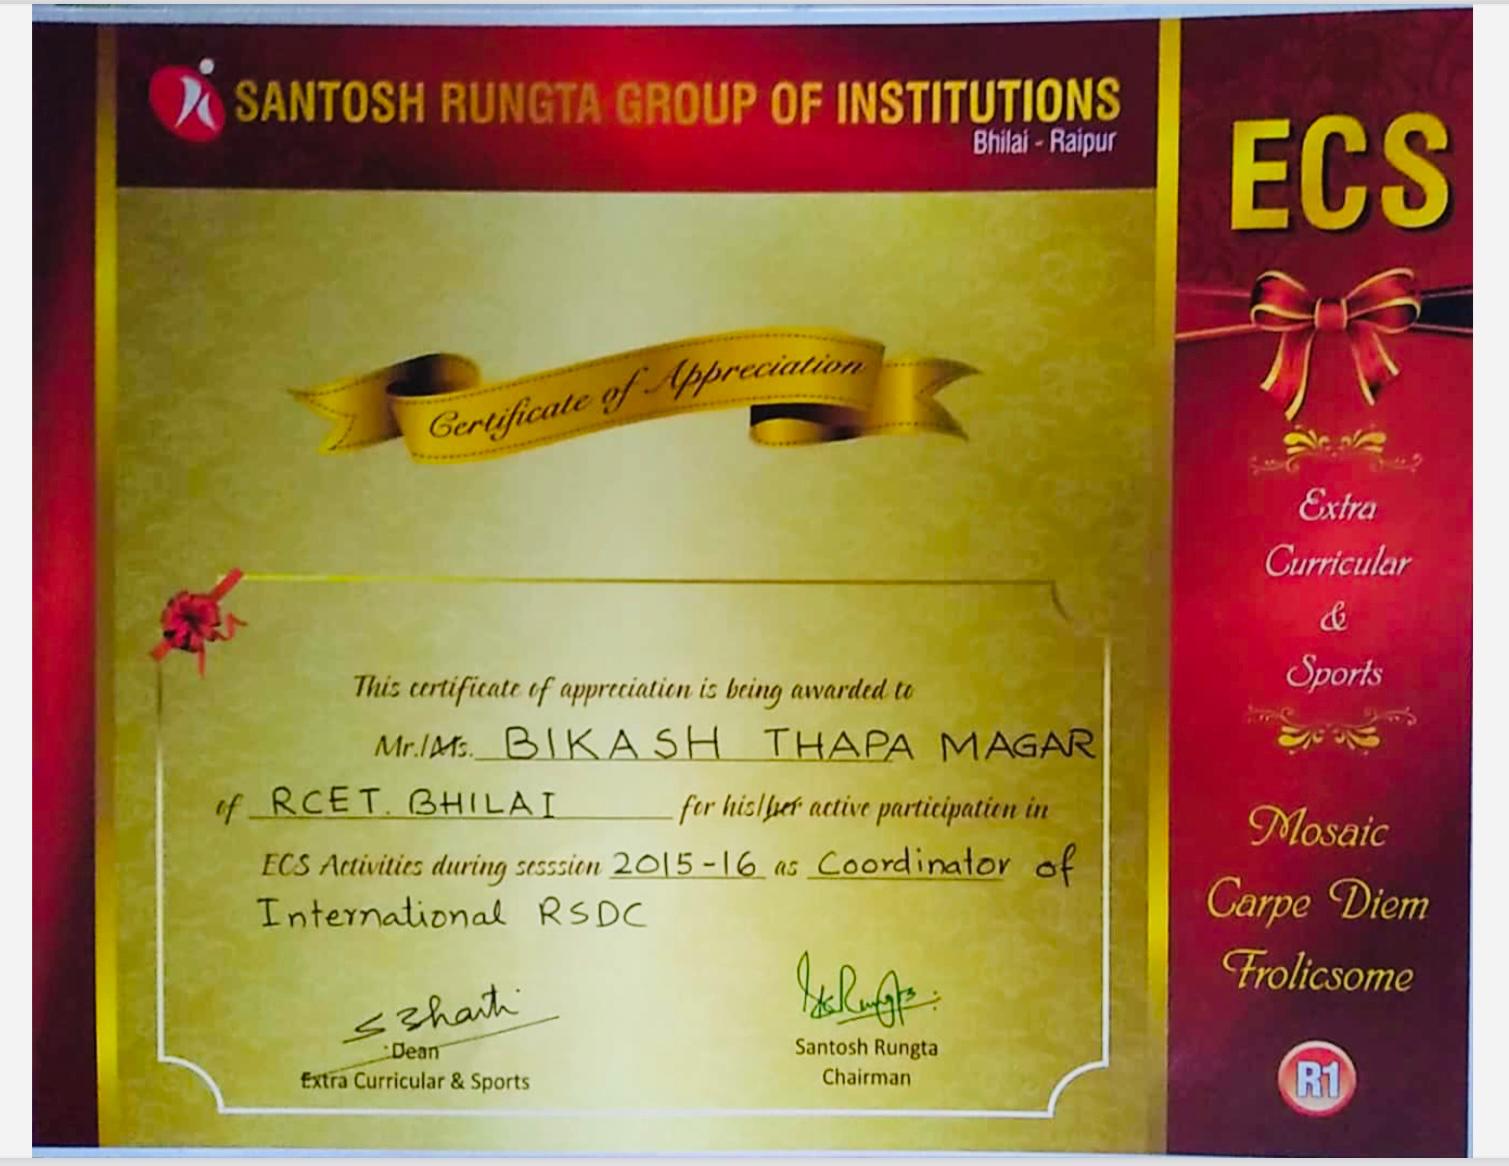 SANTOSH RUNGTA GROUP OF INSTITUTIONS
Bhilai - Raipur
Certificate of Appreciation
This certificate of appreciation is being awarded to
Mr./Ms. BIKASH THAPA MAGAR
of RCET. BHILAI for his/her active participation in
ECS Activities during sesssion 2015-16 as Coordinator of
International RSDC
Dean
Extra Curricular & Sports
Santosh Rungta
Chairman
ECS
Extra
Curricular
&
Sports
Mosaic
Carpe Diem
Frolicsome
R1